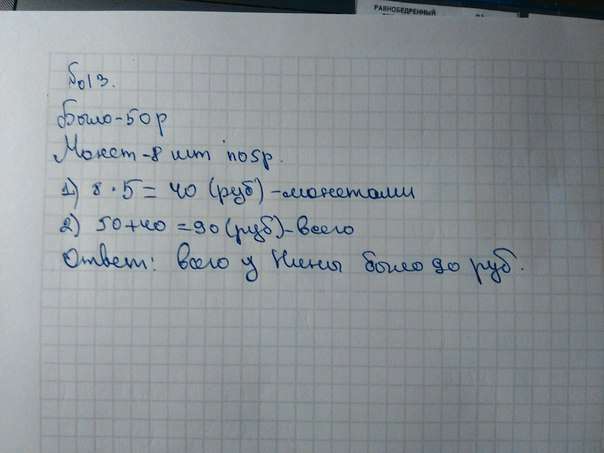 РАВНОБЕДРЕННЫЙ
№13.
Было-50р
Монет-8 шт по 5р.
1) 8·5=40 (руб)-монетами
2) 50+40=90(руб)-всего
Ответ: всего у Нины было 90 руб.